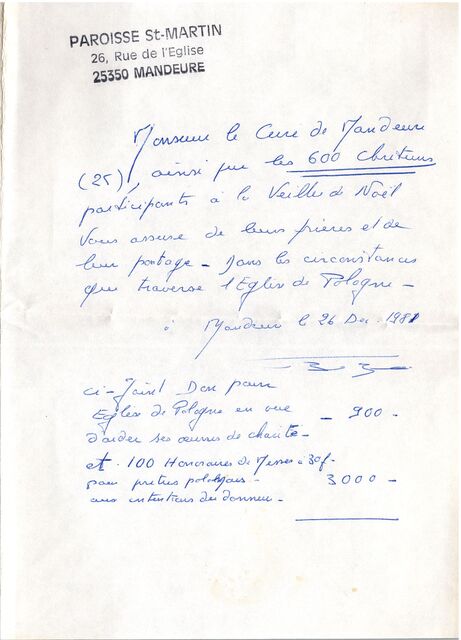 PAROISSE St-MARTIN
26, Rue de l'Eglise
25350 MANDEURE
Monsieur le Curé de Mandeure
(25), ainsi que les 600 chrétiens
participants à la Veillée de Noël
Vous assure de leurs prières et de
leur partage - Dans les circonstances
que traverse l'Eglise de Pologne -
à Mandeure le 26 Dec. 1981
ci-Joint Don pour
Eglise de Pologne en vue
d'aider ses œuvres de charité - - 900 -
et 100 Honoraires de Messes à 30f -
pour prêtres polonais - 3000 -
aux intentions des donneurs -